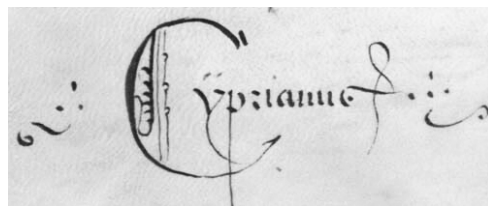 Cÿprianus